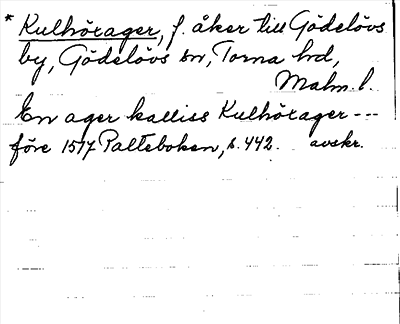 * Kulhöxager, f. åker till Gödelövs
by, Gödelövs sn, Torna hd,
Malm. l.
En ager kalliss Kulhöxager ---
före 1517 Palteboken, s. 442. avskr.